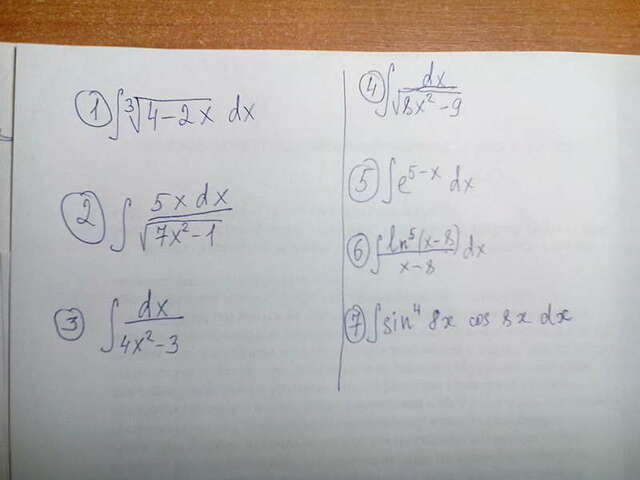 ① ∫∛(4-2x) dx
② ∫ 5x dx / √(7x²-1)
③ ∫ dx / (4x²-3)
④ ∫ dx / √(8x²-9)
⑤ ∫e^(5-x) dx
⑥ ∫ ln⁵(x-8) / (x-8) dx
⑦ ∫sin⁴ 8x cos 8x dx